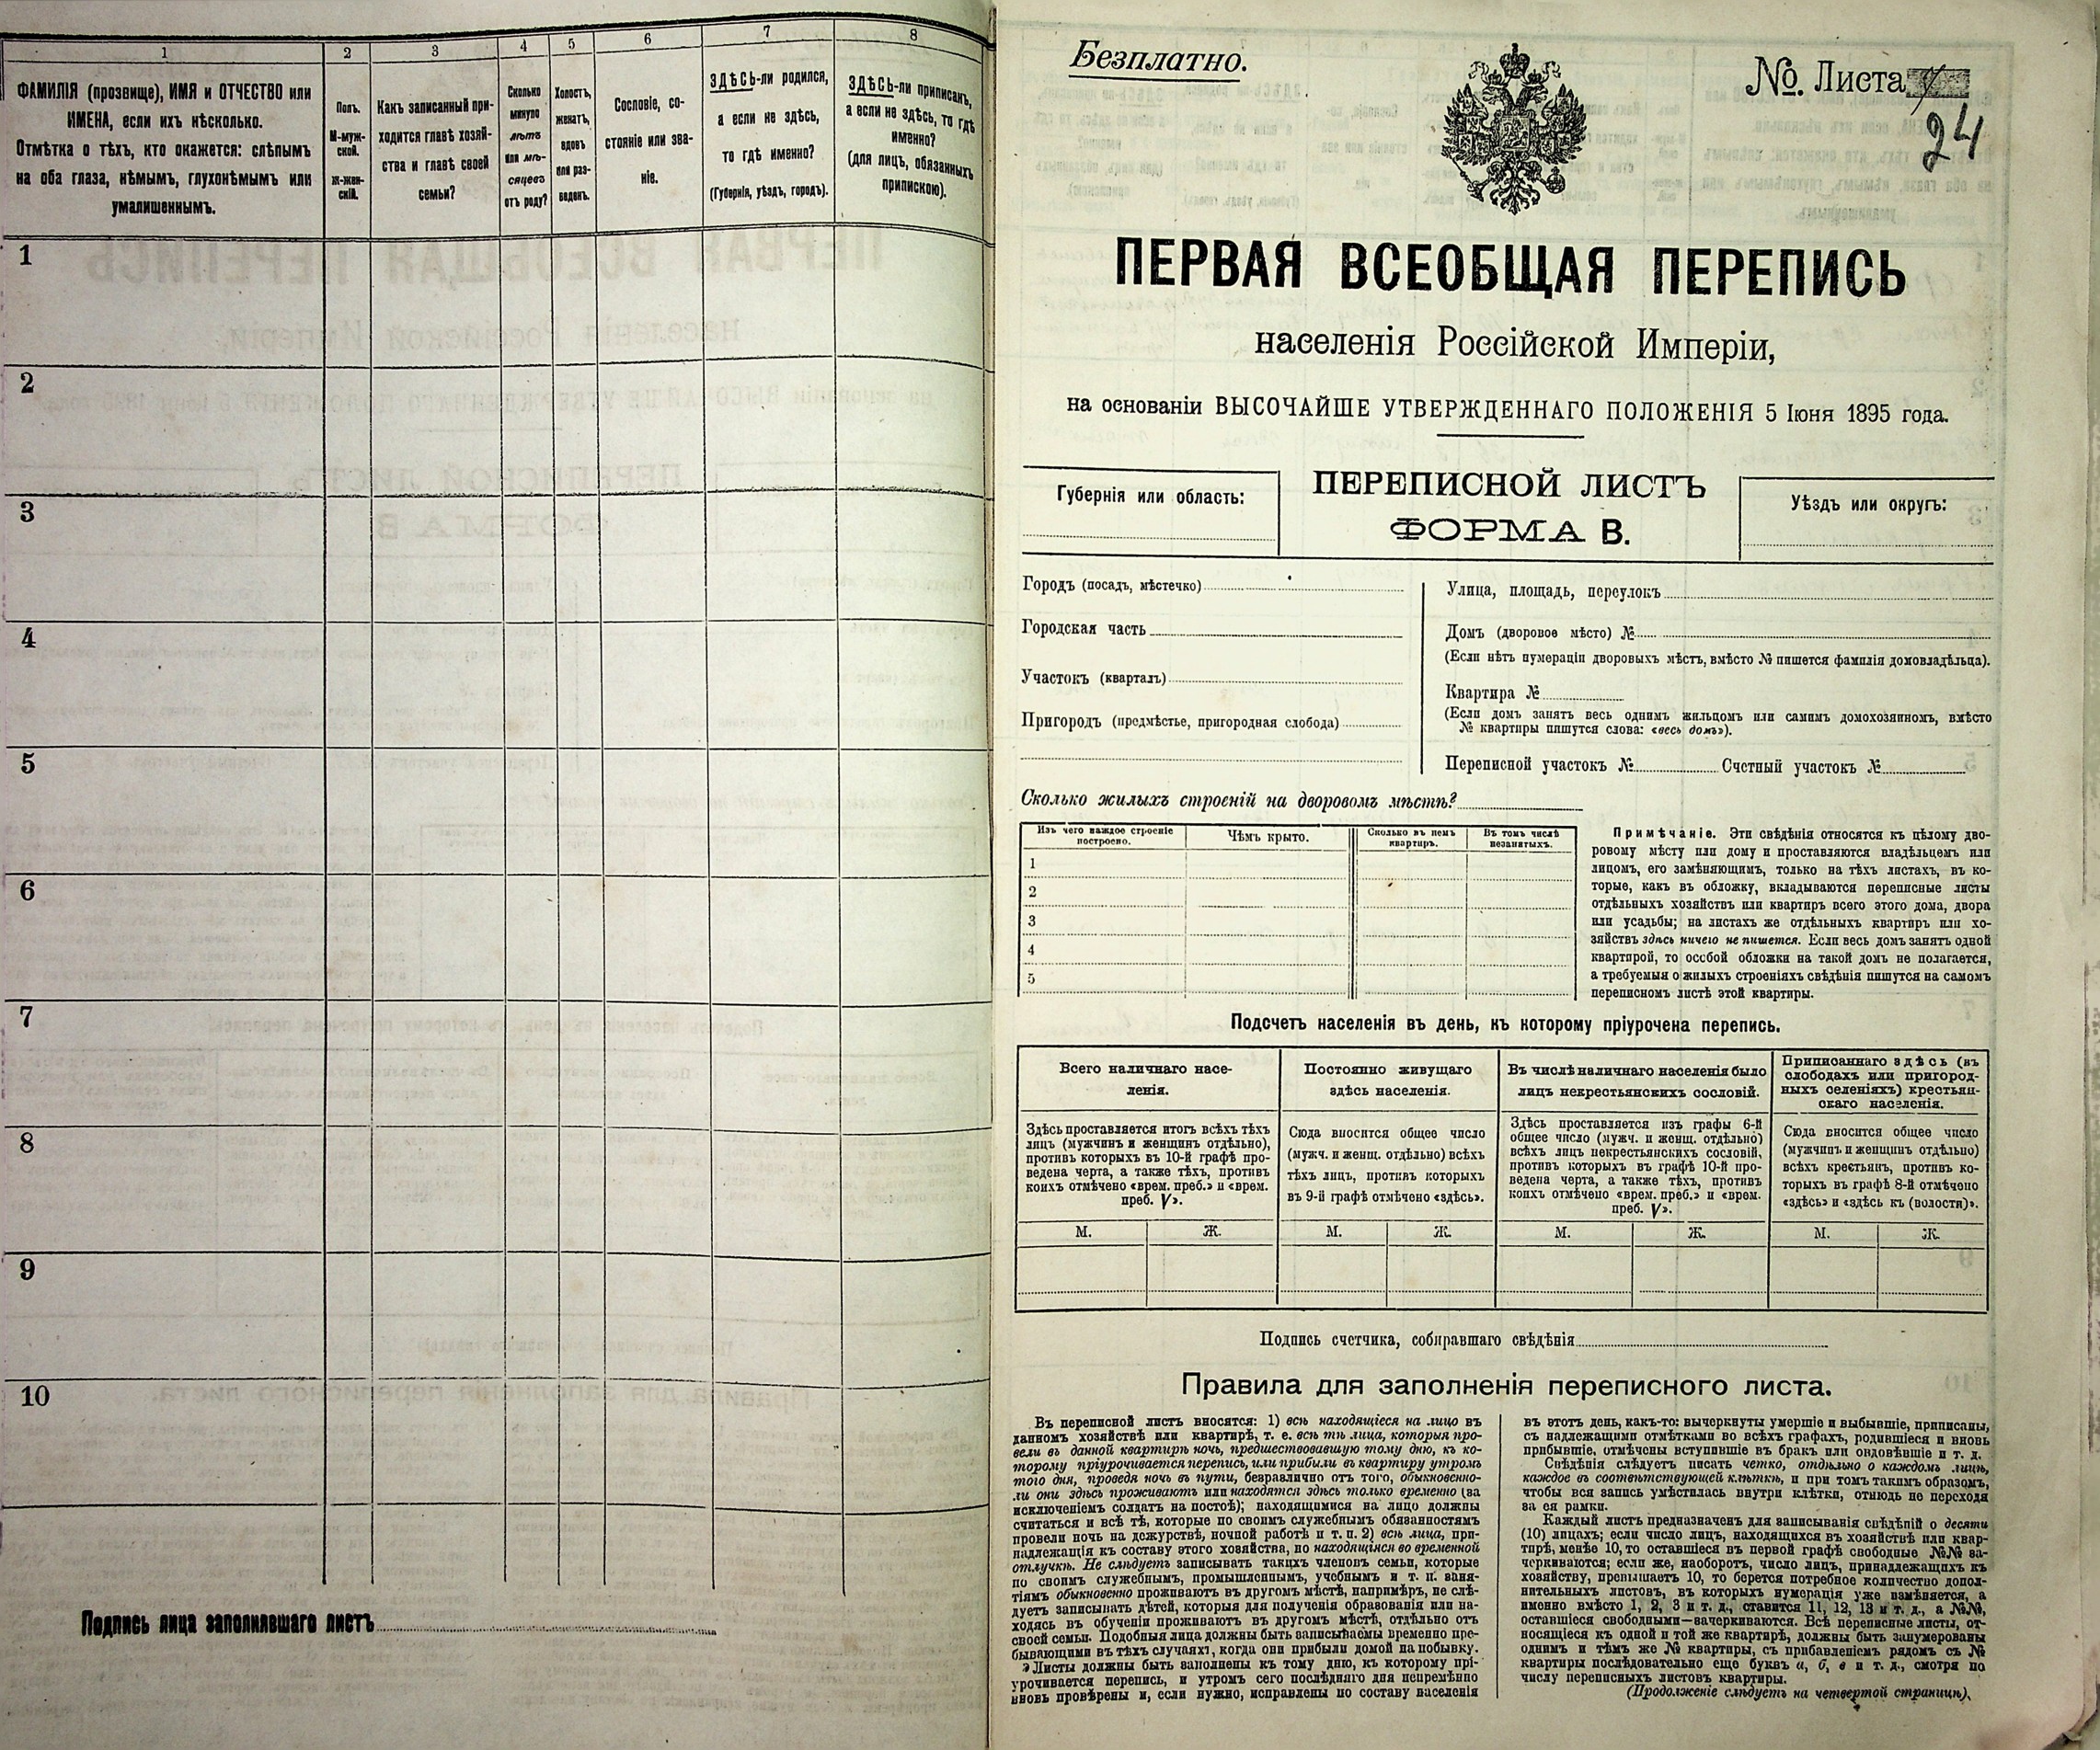 1 2 3 4 5 6 7 8
ФАМИЛІЯ (прозвище), ИМЯ и ОТЧЕСТВО или
ИМЕНА, если ихъ нѣсколько.
Отмѣтка о тѣхъ, кто окажется: слѣпымъ
на оба глаза, нѣмымъ, глухонѣмымъ или
умалишеннымъ.
Полъ.
М-муж-
ской.
Ж-жен-
скій.
Какъ записанный при-
ходится главѣ хозяй-
ства и главѣ своей
семьи?
Сколько
минуло
лѣтъ
или мѣ-
сяцевъ
отъ роду?
Холостъ,
женатъ,
вдовъ
или раз-
веденъ.
Сословіе, со-
стояніе или зва-
ніе.
ЗДѢСЬ-ли родился,
а если не здѣсь,
то гдѣ именно?
(Губернія, уѣздъ, городъ).
ЗДѢСЬ-ли приписанъ,
а если не здѣсь, то гдѣ
именно?
(для лицъ, обязанныхъ
припискою).
1
2
3
4
5
6
7
8
9
10
Подпись лица заполнявшаго листъ
Безплатно.
№. Листа
24
ПЕРВАЯ ВСЕОБЩАЯ ПЕРЕПИСЬ
населенія Россійской Имперіи,
на основаніи ВЫСОЧАЙШЕ УТВЕРЖДЕННАГО ПОЛОЖЕНІЯ 5 Іюня 1895 года.
Губернія или область:
ПЕРЕПИСНОЙ ЛИСТЪ
ФОРМА В.
Уѣздъ или округъ:
Городъ (посадъ, мѣстечко)
Городская часть
Участокъ (кварталъ)
Пригородъ (предмѣстье, пригородная слобода)
Улица, площадь, переулокъ
Домъ (дворовое мѣсто) №
(Если нѣтъ нумераціи дворовыхъ мѣстъ, вмѣсто № пишется фамилія домовладѣльца).
Квартира №
(Если домъ занятъ весь однимъ жильцомъ или самимъ домохозяиномъ, вмѣсто
№ квартиры пишутся слова: «весь домъ»).
Переписной участокъ № Счетный участокъ №
Сколько жилыхъ строеній на дворовомъ мѣстѣ?
Изъ чего каждое строеніе
построено.
Чѣмъ крыто.
Сколько въ немъ
квартиръ.
Въ томъ числѣ
незанятыхъ.
1
2
3
4
5
Примѣчаніе. Эти свѣдѣнія относятся къ цѣлому дво-
ровому мѣсту или дому и проставляются владѣльцемъ или
лицомъ, его замѣняющимъ, только на тѣхъ листахъ, въ ко-
торые, какъ въ обложку, вкладываются переписные листы
отдѣльныхъ хозяйствъ или квартиръ всего этого дома, двора
или усадьбы; на листахъ же отдѣльныхъ квартиръ или хо-
зяйствъ здѣсь ничего не пишется. Если весь домъ занятъ одной
квартирой, то особой обложки на такой домъ не полагается,
а требуемыя о жилыхъ строеніяхъ свѣдѣнія пишутся на самомъ
переписномъ листѣ этой квартиры.
Подсчетъ населенія въ день, къ которому пріурочена перепись.
Всего наличнаго насе-
ленія.
Постоянно живущаго
здѣсь населенія.
Въ числѣ наличнаго населенія было
лицъ некрестьянскихъ сословій.
Приписаннаго здѣсь (въ
слободахъ или пригород-
ныхъ селеніяхъ) крестьян-
скаго населенія.
Здѣсь проставляется итогъ всѣхъ тѣхъ
лицъ (мужчинъ и женщинъ отдѣльно),
противъ которыхъ въ 10-й графѣ про-
ведена черта, а также тѣхъ, противъ
коихъ отмѣчено «врем. преб.» и «врем.
преб. V».
Сюда вносится общее число
(мужч. и женщ. отдѣльно) всѣхъ
тѣхъ лицъ, противъ которыхъ
въ 9-й графѣ отмѣчено «здѣсь».
Здѣсь проставляется изъ графы 6-й
общее число (мужч. и женщ. отдѣльно)
всѣхъ лицъ некрестьянскихъ сословій,
противъ которыхъ въ графѣ 10-й про-
ведена черта, а также тѣхъ, противъ
коихъ отмѣчено «врем. преб.» и «врем.
преб. V».
Сюда вносится общее число
(мужчинъ и женщинъ отдѣльно)
всѣхъ крестьянъ, противъ ко-
торыхъ въ графѣ 8-й отмѣчено
«здѣсь» и «здѣсь къ (волостя)».
М. Ж. М. Ж. М. Ж. М. Ж.
Подпись счетчика, собиравшаго свѣдѣнія
Правила для заполненія переписного листа.
Въ переписной листъ вносятся: 1) всѣ находящіеся на лицо въ
данномъ хозяйствѣ или квартирѣ, т. е. всѣ тѣ лица, которыя про-
вели въ данной квартирѣ ночь, предшествовавшую тому дню, къ ко-
торому пріурочивается перепись, или прибыли въ квартиру утромъ
того дня, проведя ночь въ пути, безразлично отъ того, обыкновенно-
ли они здѣсь проживаютъ или находятся здѣсь только временно (за
исключеніемъ солдатъ на постоѣ); находящимися на лицо должны
считаться и всѣ тѣ, которые по своимъ служебнымъ обязанностямъ
провели ночь на дежурствѣ, ночной работѣ и т. п. 2) всѣ лица, при-
надлежащія къ составу этого хозяйства, но находящіяся во временной
отлучкѣ. Не слѣдуетъ записывать такихъ членовъ семьи, которые
по своимъ служебнымъ, промышленнымъ, учебнымъ и т. п. заня-
тіямъ обыкновенно проживаютъ въ другомъ мѣстѣ, напримѣръ, не слѣ-
дуетъ записывать дѣтей, которыя для полученія образованія или на-
ходясь въ обученіи проживаютъ въ другомъ мѣстѣ, отдѣльно отъ
своей семьи. Подобныя лица должны быть записываемы временно пре-
бывающими въ тѣхъ случаяхъ, когда они прибыли домой на побывку.
Листы должны быть заполнены къ тому дню, къ которому прі-
урочивается перепись, и утромъ сего послѣдняго дня непремѣнно
вновь провѣрены и, если нужно, исправлены по составу населенія
въ этотъ день, какъ-то: вычеркнуты умершіе и выбывшіе, приписаны,
съ надлежащими отмѣтками во всѣхъ графахъ, родившіеся и вновь
прибывшіе, отмѣчены вступившіе въ бракъ или овдовѣвшіе и т. д.
Свѣдѣнія слѣдуетъ писать четко, отдѣльно о каждомъ лицѣ,
каждое въ соотвѣтствующей клѣткѣ, и при томъ такимъ образомъ,
чтобы вся запись умѣстилась внутри клѣтки, отнюдь не переходя
за ея рамки.
Каждый листъ предназначенъ для записыванія свѣдѣній о десяти
(10) лицахъ; если число лицъ, находящихся въ хозяйствѣ или квар-
тирѣ, менѣе 10, то оставшіеся въ первой графѣ свободные №№ за-
черкиваются; если же, наоборотъ, число лицъ, принадлежащихъ къ
хозяйству, превышаетъ 10, то берется потребное количество допол-
нительныхъ листовъ, въ которыхъ нумерація уже измѣняется, а
именно вмѣсто 1, 2, 3 и т. д., ставится 11, 12, 13 и т. д., а №№,
оставшіеся свободными—зачеркиваются. Всѣ переписные листы, от-
носящіеся къ одной и той же квартирѣ, должны быть занумерованы
однимъ и тѣмъ же № квартиры, съ прибавленіемъ рядомъ съ №
квартиры послѣдовательно еще буквъ а, б, в и т. д., смотря по
числу переписныхъ листовъ квартиры.
(Продолженіе слѣдуетъ на четвертой страницѣ).